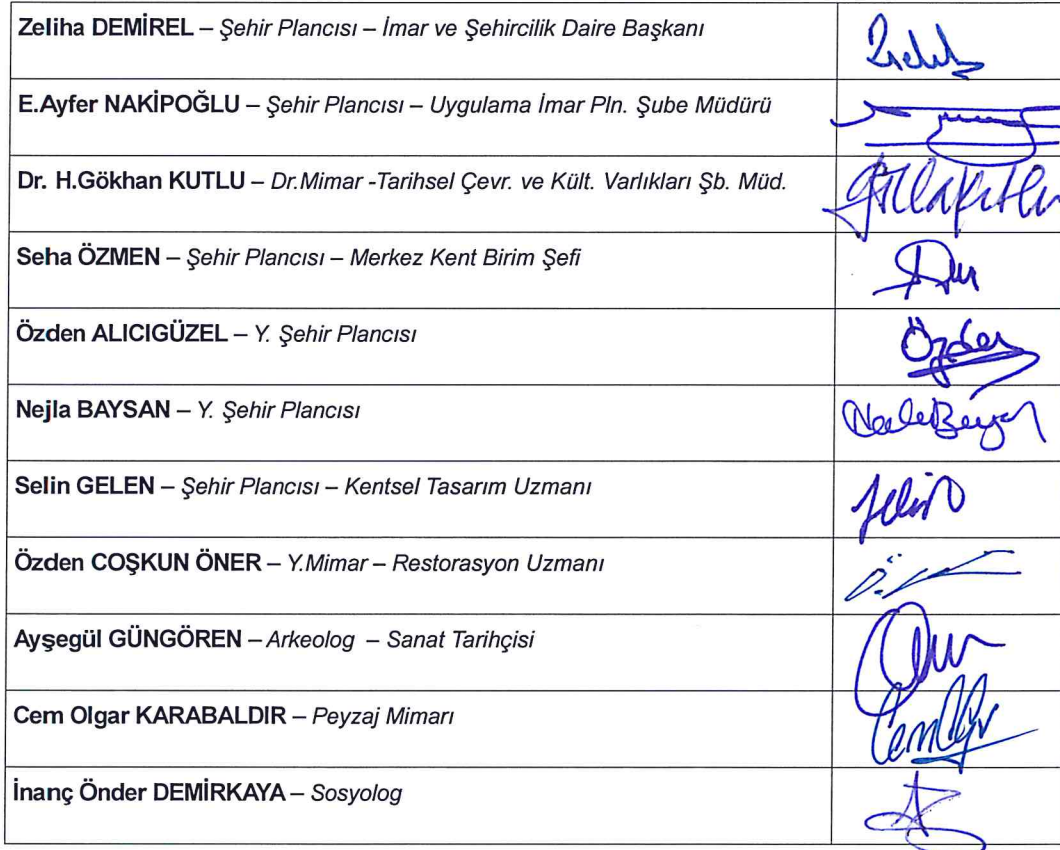 Zeliha DEMİREL – Şehir Plancısı – İmar ve Şehircilik Daire Başkanı
E.Ayfer NAKİPOĞLU – Şehir Plancısı – Uygulama İmar Pln. Şube Müdürü
Dr. H.Gökhan KUTLU – Dr.Mimar -Tarihsel Çevr. ve Kült. Varlıkları Şb. Müd.
Seha ÖZMEN – Şehir Plancısı – Merkez Kent Birim Şefi
Özden ALICIGÜZEL – Y. Şehir Plancısı
Özden
Nejla BAYSAN – Y. Şehir Plancısı
Selin GELEN – Şehir Plancısı – Kentsel Tasarım Uzmanı
Selin
Özden COŞKUN ÖNER – Y.Mimar – Restorasyon Uzmanı
Ayşegül GÜNGÖREN – Arkeolog – Sanat Tarihçisi
Cem Olgar KARABALDIR – Peyzaj Mimarı
İnanç Önder DEMİRKAYA – Sosyolog